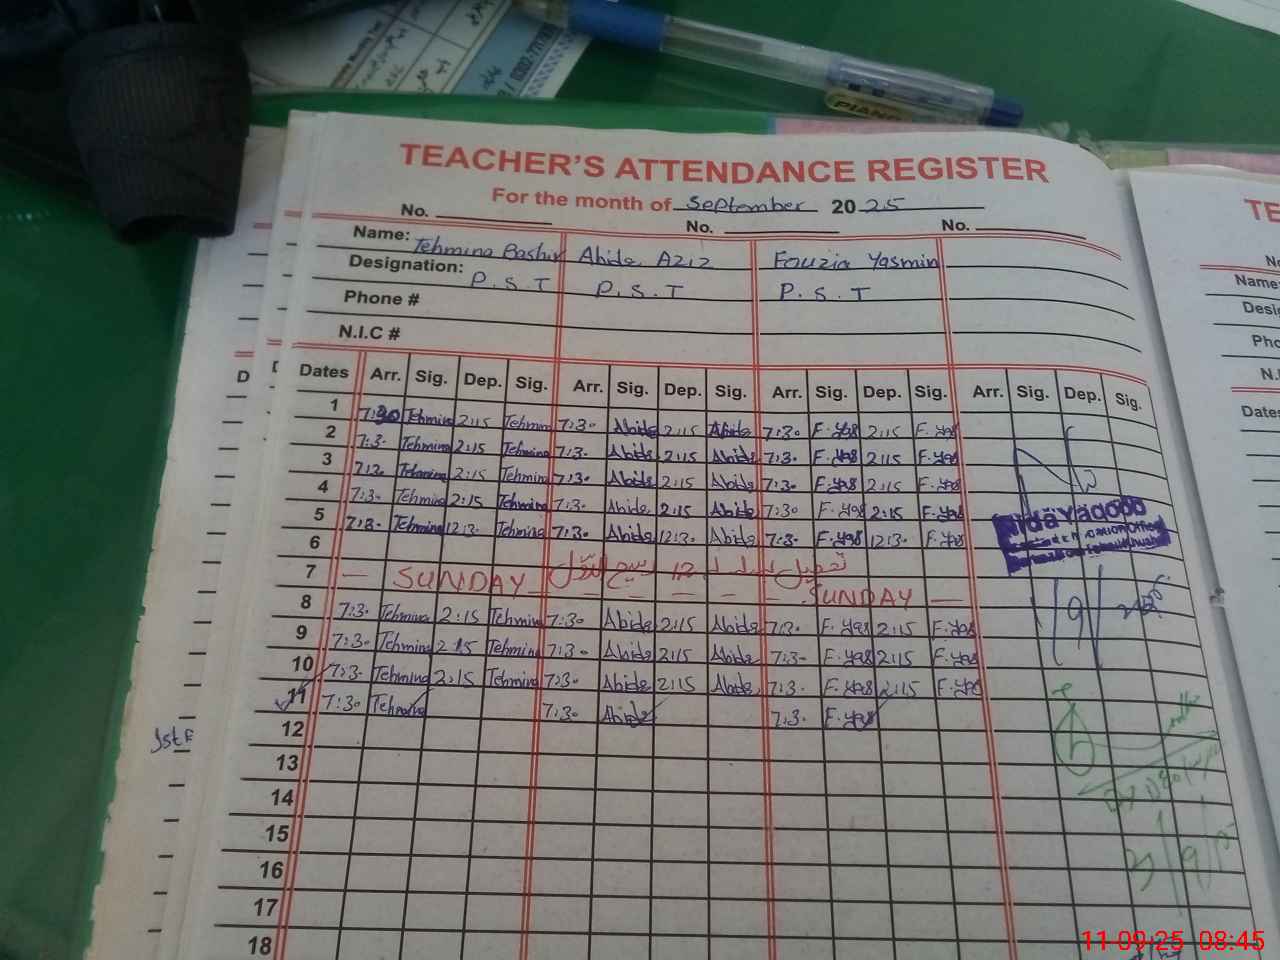 PIANO
TEACHER'S ATTENDANCE REGISTER
For the month of September 2025
No. No. No.
Name: Tehmina Bashir Abida Aziz Fouzia Yasmin
Designation: P.S.T P.S.T P.S.T
Phone #
N.I.C #
Dates Arr. Sig. Dep. Sig. Arr. Sig. Dep. Sig. Arr. Sig. Dep. Sig. Arr. Sig. Dep. Sig.
1 7:30 Tehmina 2:15 Tehmina 7:30 Abida 2:15 Abida 7:30 F.Yas 2:15 F.Yas
2 7:30 Tehmina 2:15 Tehmina 7:30 Abida 2:15 Abida 7:30 F.Yas 2:15 F.Yas
3 7:30 Tehmina 2:15 Tehmina 7:30 Abida 2:15 Abida 7:30 F.Yas 2:15 F.Yas
4 7:30 Tehmina 2:15 Tehmina 7:30 Abida 2:15 Abida 7:30 F.Yas 2:15 F.Yas
5 7:30 Tehmina 12:30 Tehmina 7:30 Abida 12:30 Abida 7:30 F.Yas 12:30 F.Yas
6 تعطیل بسلسلہ 12 ربیع الاول
7 — SUNDAY — — — — — SUNDAY —
8 7:30 Tehmina 2:15 Tehmina 7:30 Abida 2:15 Abida 7:30 F.Yas 2:15 F.Yas
9 7:30 Tehmina 2:15 Tehmina 7:30 Abida 2:15 Abida 7:30 F.Yas 2:15 F.Yas
10 7:30 Tehmina 2:15 Tehmina 7:30 Abida 2:15 Abida 7:30 F.Yas 2:15 F.Yas
11 7:30 Tehmina 7:30 Abida 7:30 F.Yas
12
13
14
15
16
17
18
Yaqoob
TE
Name:
Dates
11-09-25 08:45